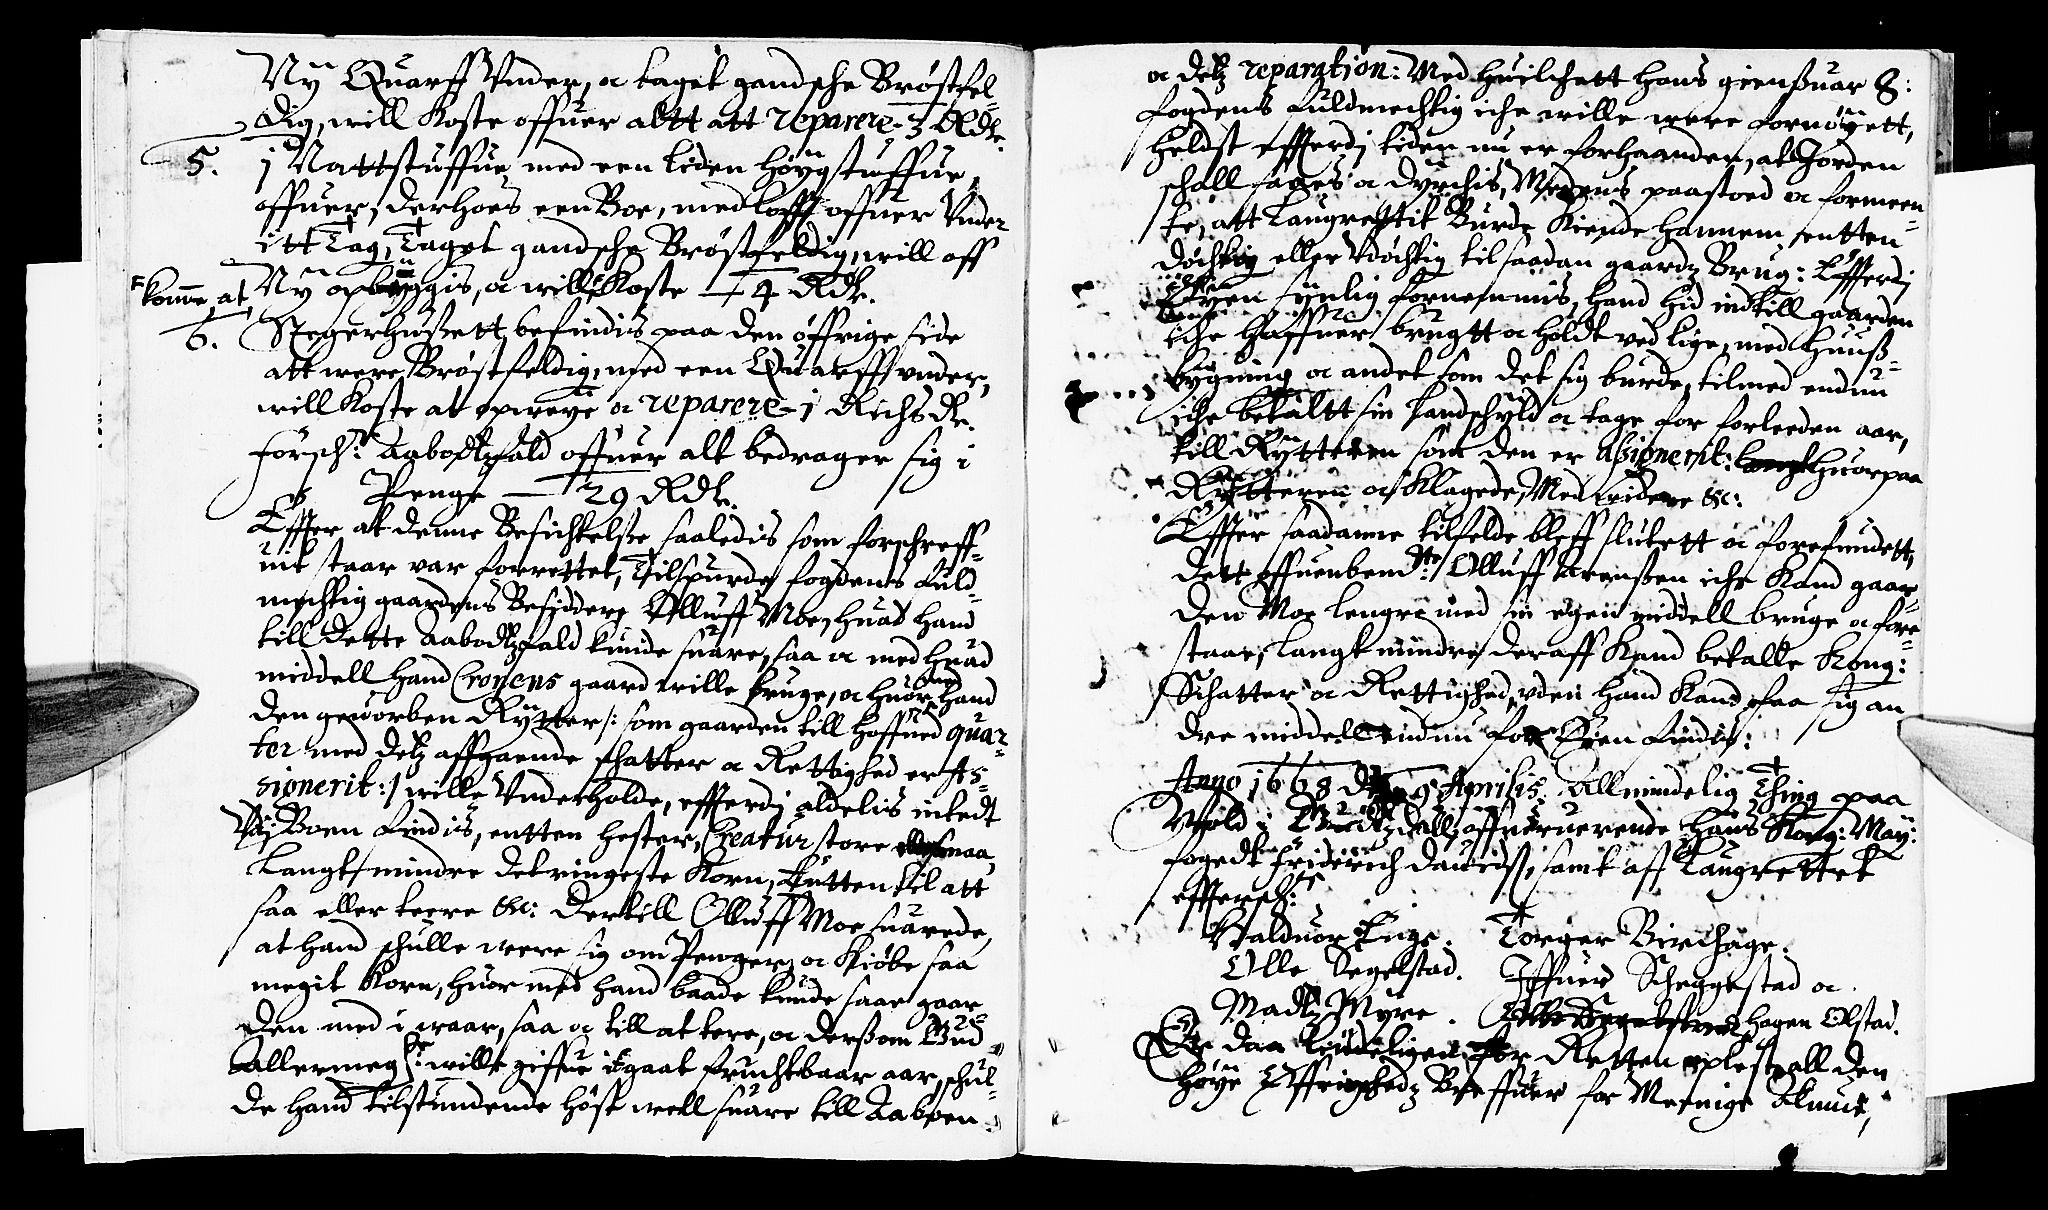 Ny Quarff Vnder, oc taget gandsche Brøstfel=
dig, will Koste offuer altt att reparere - 3 Rdr.
5. 1 Nattstuffue, med een liden høygstuffue
offuer, derhoes een Boe, med lofft offuer Vnder
itt Tag, Taget gandsche Brøstfeldig, will aff
komme at Ny opbyggis, oc will Koste — 4 Rdr.
6. Stegerhußett, befindis paa den øffrige side
att were Brøstfeldig, med een Quarff vnder,
will Koste at opweye oc reparere - 1 Richs dr.
forsch: Aabodtzfald offuer alt bedrager sig i
Penge — 29 Rdr.
Effter at denne Besichtelße saaledis som forschreff=
uit staar var forrettet, Tilspurde fogdens fuld=
mechtig gaardens Besiddere Olluff Moe, huad hand
till dette Aabodtzfald kunde suare, saa oc med huad
middell hand Cronens gaard wille bruge, oc huor med hand
den geuorben Rytter /: som gaarden till hoffned quar=
ter med deltz affgaaende schatter oc Rettighed er As=
signerit :/ wille Vnderholde, effterdj aldelis intedt
Vdj Boen findis, entten hester, Creatur store eller smaa,
Langt mindre det ringeste Korn, Entten til att
saa eller teere &c: Dertill Olluff Moe suarede,
at hand schulle were sig om Penger, oc Kiøbe saa
megit Korn, huor med hand baade kunde saae gaar=
den med i waar, saa oc till at tere, oc dersom Gud
Allermeg: wille giffue it gaat fruchtbaar aar, schul=
de hand tilstundende høst well suare till Aaboen
oc deltz reparation: Med huilchett hans gienßuar S:
fogdens fuldmechtig iche wille were fornøyett,
heldst effterdj tiden nu er forhaanden, at Jorden
schall saaes oc dyrchis, Medens paastoed oc formeen=
te, att Laugrettit Burde Kiende hannem entten
døchtig eller Vdøchtig til saadan gaardtz Brug: Effterdj
Øyen synlig fornemmis, hand hid indtill gaarden
iche haffuer brugtt oc holdt ved lige, med huuß=
bygning oc andet som det sig burde, tilmed endnu
iche betaltt sin landschyld oc tage for forleeden aar,
till Rytteren som den er Aßignerit: huorpaa
Rytteren oc Klagede, Med widere &c:
Effter saadanne tilfelde bleff sluttett oc forefundett,
dett offuenbemte: Olluff Arenßen iche Kand gaar=
den Moe lengre med sin egen middell bruge oc fore=
staae, langt mindre deraff Kand betalle Kong:
Schatter oc Rettighed, vden hand Kand faa sig an
dre middell endnu for Øyen findis:
Anno 1668 d. 9 Aprilis. Allmindelig Ting paa
Wold i Gudtzdall, offueruerende hans Kong: May:
fogedt Friderich dauidß, samt aff Laugrettet
effterschr:
Haldvor Enge. Torger Birchage.
Olle Segelstad. Iffuer Schougstad oc
Madtz Myre. Hagen Olstad.
Er daa tiudeligen for Retten oplest all den
høye Øffrighedz Breffuer for Meenige Almue,